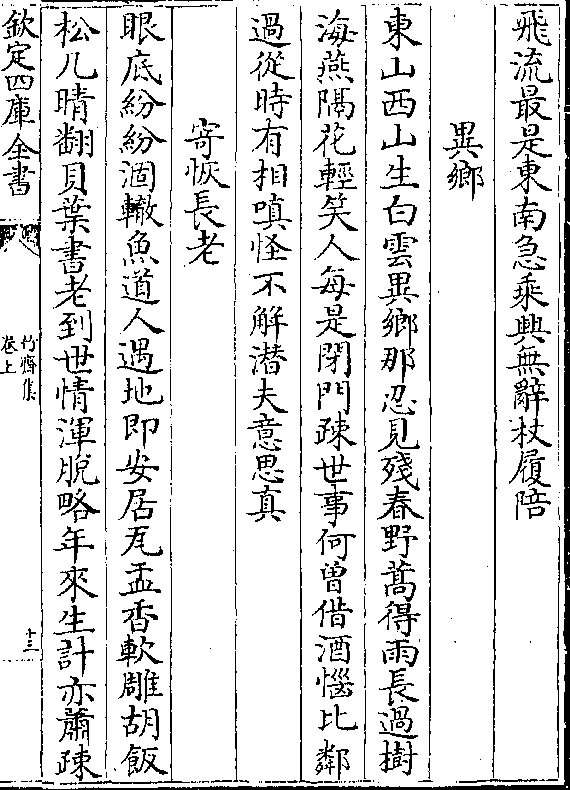 飛流最是東南急乗興無辭杖履陪
異鄉
東山西山生白雲異鄉那忍見殘春野蒿得雨長過樹
海燕隔花輕笑人每是閉門疎世事何曾借酒惱比鄰
過從時有相嗔怪不解潜夫意思真
寄恢長老
眼底紛紛涸轍魚道人遇地即安居瓦盂香軟雕胡飯
松几晴翻貝葉書老到世情渾脫略年來生計亦蕭疎
欽定四庫全書
竹齋集
卷上
十三